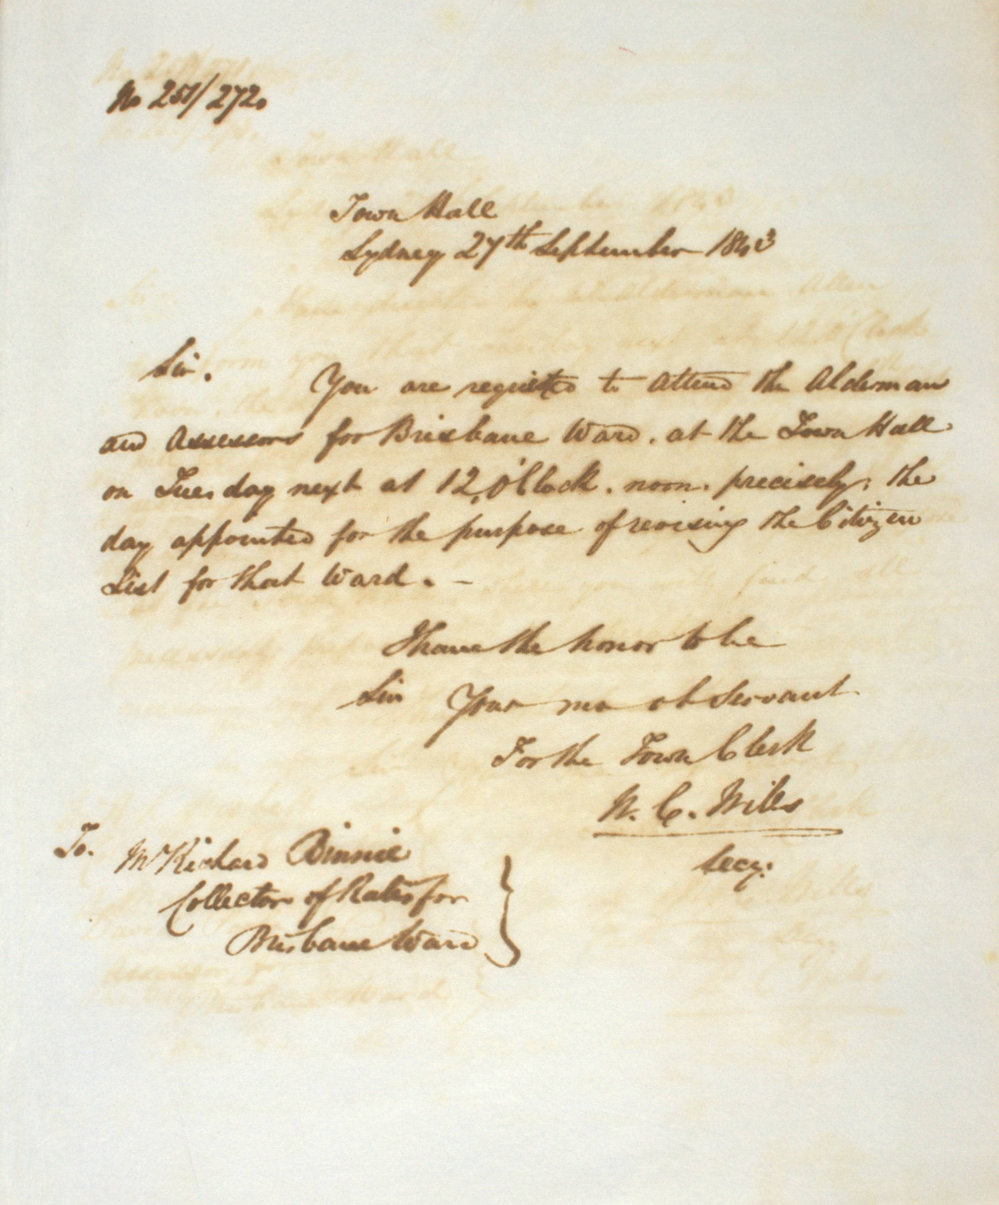 No 251/272.
Town Hall
Sydney 27th September 1843
Sir. You are requested to attend the Alderman
and Assessors for Brisbane Ward. at the Town Hall
on Tuesday next at 12, O'Clock. noon. precisely, the
day appointed for the purpose of revising the Citizen
List for that Ward. -
I have the honor to be
Sir Your mo ob Servant
For the Town Clerk
W. C. Wills
Secy.
To. Mr Richard Binnie
Collector of Rates for
Brisbane Ward